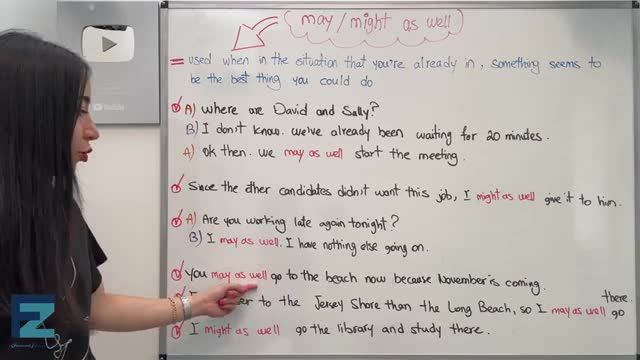 may / might as well
= used when in the situation that you're already in, something seems to
be the best thing you could do
A) Where are David and Sally?
B) I don't know. We've already been waiting for 20 minutes.
A) Ok then. We may as well start the meeting.
Since the other candidates didn't want this job, I might as well give it to him.
A) Are you working late again tonight?
B) I may as well. I have nothing else going on.
You may as well go to the beach now because November is coming.
I er to the Jersey Shore than the Long Beach, so I may as well go there.
I might as well go the library and study there.
YouTube
EZ